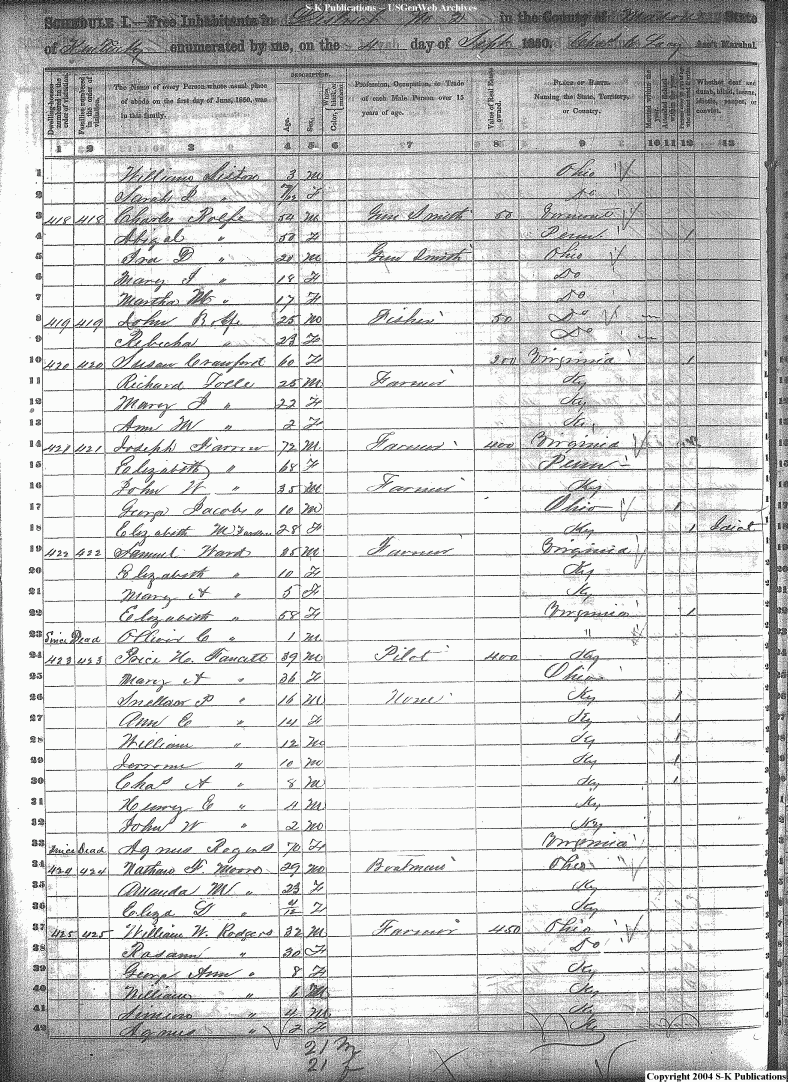 S-K Publications - USGenWeb Archives
SCHEDULE I.—Free Inhabitants in District No. 2 in the County of State
of Kentucky enumerated by me, on the 4 day of Sept 1850. Ass't Marshal.
DESCRIPTION.
Dwelling-houses numbered in the order of visitation.
Families numbered in the order of visitation.
The Name of every Person whose usual place of abode on the first day of June, 1850, was in this family.
Age.
Sex.
Color,
Profession, Occupation, or Trade of each Male Person over 15 years of age.
Value of Real Estate owned.
PLACE OF BIRTH. Naming the State, Territory, or Country.
Married within the year.
Whether deaf and dumb, blind, insane, idiotic, pauper, or convict.
1 2 3 4 5 6 7 8 9 10 11 12 13
1 William Liston 3 M Ohio
2 Sarah J " /12 F Do
3 418 418 Charles Rolfe 54 M Gun Smith 50 Vermont
4 Abigal " 50 F Penn 1
5 Ira D " 20 M Gun Smith Ohio
6 Mary J " 18 F Do
7 Martha M " 17 F Do
8 419 419 John Rolfe 25 M Fisher 50 Do
9 Rebecka " 23 F Do
10 420 420 Susan Crawford 60 F 200 Virginia 1
11 Richard Tolle 25 M Farmer Ky
12 Mary J " 22 F Ky
13 Ann M " 2 F Ky
14 421 421 Joseph Farrow 72 M Farmer 400 Virginia
15 Elizabeth " 68 F Penn
16 John W " 35 M Farmer Ky
17 George Jacobs " 10 M Ohio 1
18 Elizabeth M 28 F Ky 1 Idiot
19 422 422 Samuel Ward 25 M Farmer Virginia
20 Elizabeth " 10 F Ky
21 Mary A " 5 F Ky
22 Elizabeth " 58 F Virginia 1
23 Since Dead Oliver C " 1 M "
24 423 423 Price H. Fancett 39 M Pilot 400 Ky
25 Mary A " 36 F Ohio
26 P " 16 M None Ky 1
27 Ann E " 14 F Ky 1
28 William " 12 M Ky 1
29 Jerrome " 10 M Ky 1
30 Chas A " 8 M Ky 1
31 Henry E " 4 M Ky
32 John W " 2 M Ky
33 Since Dead Agnus 70 F Virginia
34 424 424 Nathan F. Moore 29 M Boatman Ohio
35 Amanda M " 23 F Ky
36 Eliza D " /12 F Ky
37 425 425 William W. Rodgers 32 M Farmer 450 Ohio
38 Rosann " 30 F Do
39 George Ann " 8 F Ky
40 William " 6 M Ky
41 " 4 M Ky
42 Agnus " 2 F Ky
21 M
21 F
Copyright 2004 S-K Publications